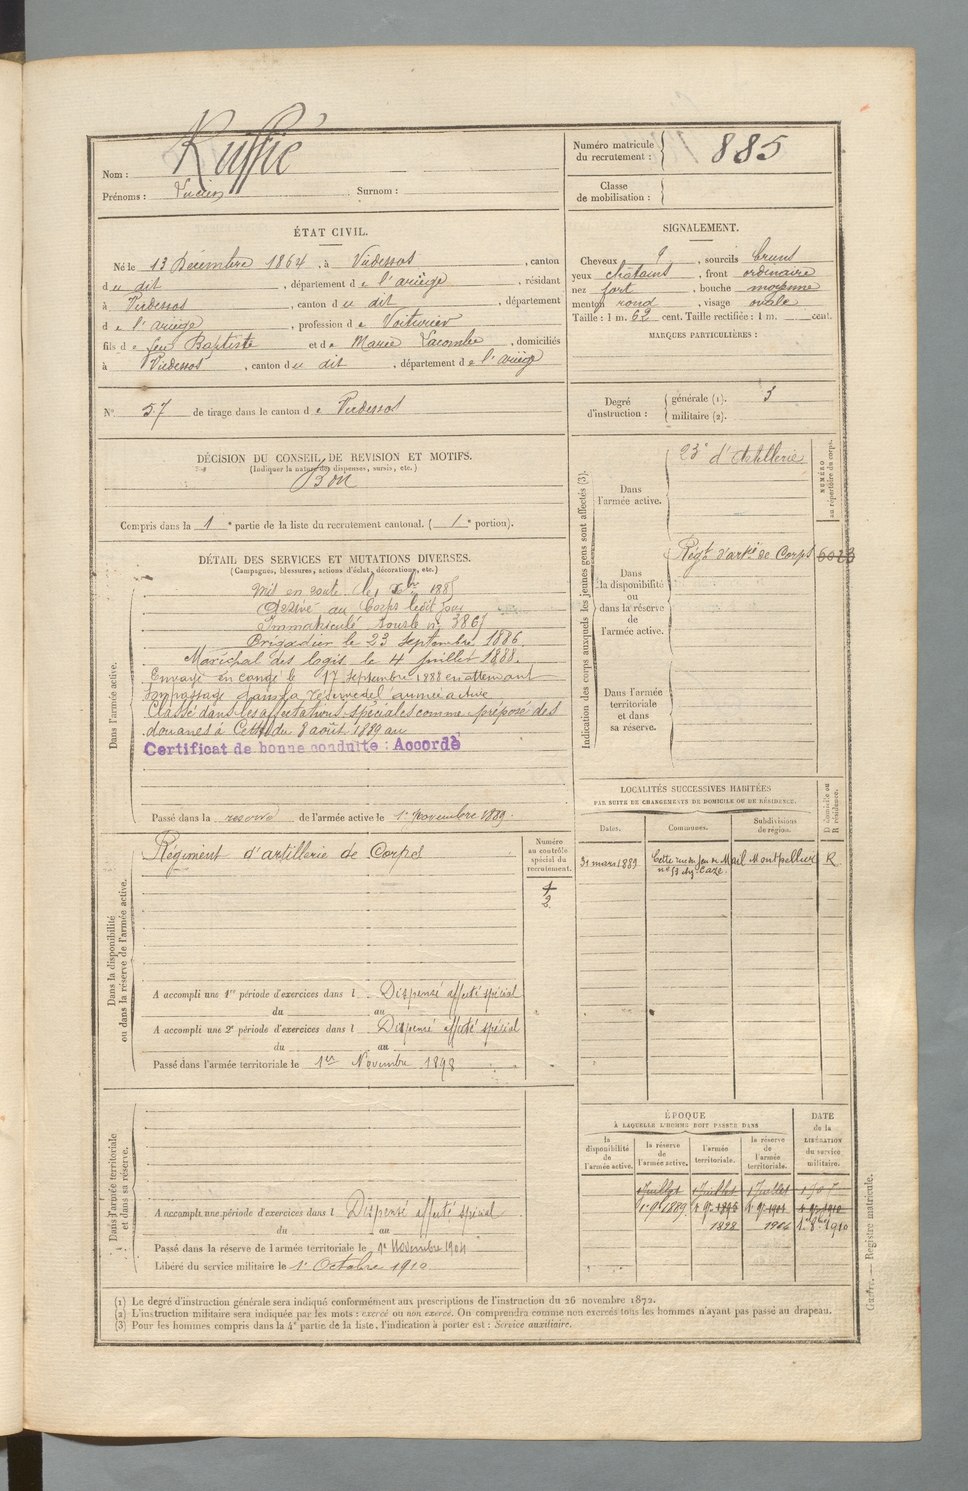 Nom : Ruffié
Prénoms : Lucien Surnom :
Numéro matricule du recrutement : 885
Classe de mobilisation :
ÉTAT CIVIL.
Né le 13 Décembre 1864, à Vicdessos, canton
du dit, département de l'ariège, résidant
à Vicdessos, canton du dit, département
de l'ariège, profession de Voiturier
fils de feu Baptiste et de Marie Lacombe, domiciliés
à Vicdessos, canton du dit, département de l'ariège
N° 57 de tirage dans le canton de Vicdessos
SIGNALEMENT.
Cheveux, sourcils bruns
yeux chatains, front ordinaire
nez fort, bouche moyenne
menton rond, visage ovale
Taille : 1 m. 62 cent. Taille rectifiée : 1 m. cent.
MARQUES PARTICULIÈRES :
Degré d'instruction : générale (1). 3
militaire (2).
DÉCISION DU CONSEIL DE REVISION ET MOTIFS.
(Indiquer la nature des dispenses, sursis, etc.)
Bon
Compris dans la 1e partie de la liste du recrutement cantonal. (1e portion).
DÉTAIL DES SERVICES ET MUTATIONS DIVERSES.
(Campagnes, blessures, actions d'éclat, décorations, etc.)
Dans l'armée active.
Mis en route le 1 Xbre 1885
Arrivé au Corps ledit jour
Immatriculé sous le n°
Brigadier le 23 Septembre 1886
Maréchal des logis le 4 juillet 1888.
Envoyé en congé le 17 Septembre 1888 en attendant
son passage dans la réserve de l'armée active
Classé dans les affectations spéciales comme préposé des
douanes à Cette du 8 août 1889 au
Certificat de bonne conduite : Accordé
Passé dans la réserve de l'armée active le 1er Novembre 1889.
Indication des corps auxquels les jeunes gens sont affectés (3).
NUMÉRO au répertoire du corps.
Dans l'armée active. 23e d'Artillerie
Dans la disponibilité ou dans la réserve de l'armée active. Régt d'artie de Corps 6023
Dans l'armée territoriale et dans sa réserve.
LOCALITÉS SUCCESSIVES HABITÉES
PAR SUITE DE CHANGEMENTS DE DOMICILE OU DE RÉSIDENCE.
Dates. Communes. Subdivisions de région. D domicile ou R résidence.
31 mars 1889 Cette rue du jeu de Mail Montpellier R
Dans la disponibilité ou dans la réserve de l'armée active.
Régiment d'artillerie de Corps
Numéro au contrôle spécial du recrutement.
A accompli une 1re période d'exercices dans l Dispensé affecté spécial
du au
A accompli une 2e période d'exercices dans l Dispensé affecté spécial
du au
Passé dans l'armée territoriale le 1er Novembre 1898
Dans l'armée territoriale et dans sa réserve.
A accompli une période d'exercices dans l Dispensé affecté spécial
du au
Passé dans la réserve de l'armée territoriale le 1er Novembre 1904
Libéré du service militaire le 1er Octobre 1910
ÉPOQUE
À LAQUELLE L'HOMME DOIT PASSER DANS
la disponibilité de l'armée active. la réserve de l'armée active. l'armée territoriale. la réserve de l'armée territoriale. DATE de la LIBÉRATION du service militaire.
1 Juillet 1 Juillet 1 Juillet
1898 1904 1910
(1) Le degré d'instruction générale sera indiqué conformément aux prescriptions de l'instruction du 26 novembre 1872.
(2) L'instruction militaire sera indiquée par les mots : exercé ou non exercé. On comprendra comme non exercés tous les hommes n'ayant pas passé au drapeau.
(3) Pour les hommes compris dans la 4e partie de la liste, l'indication à porter est : Service auxiliaire.
Registre matricule.